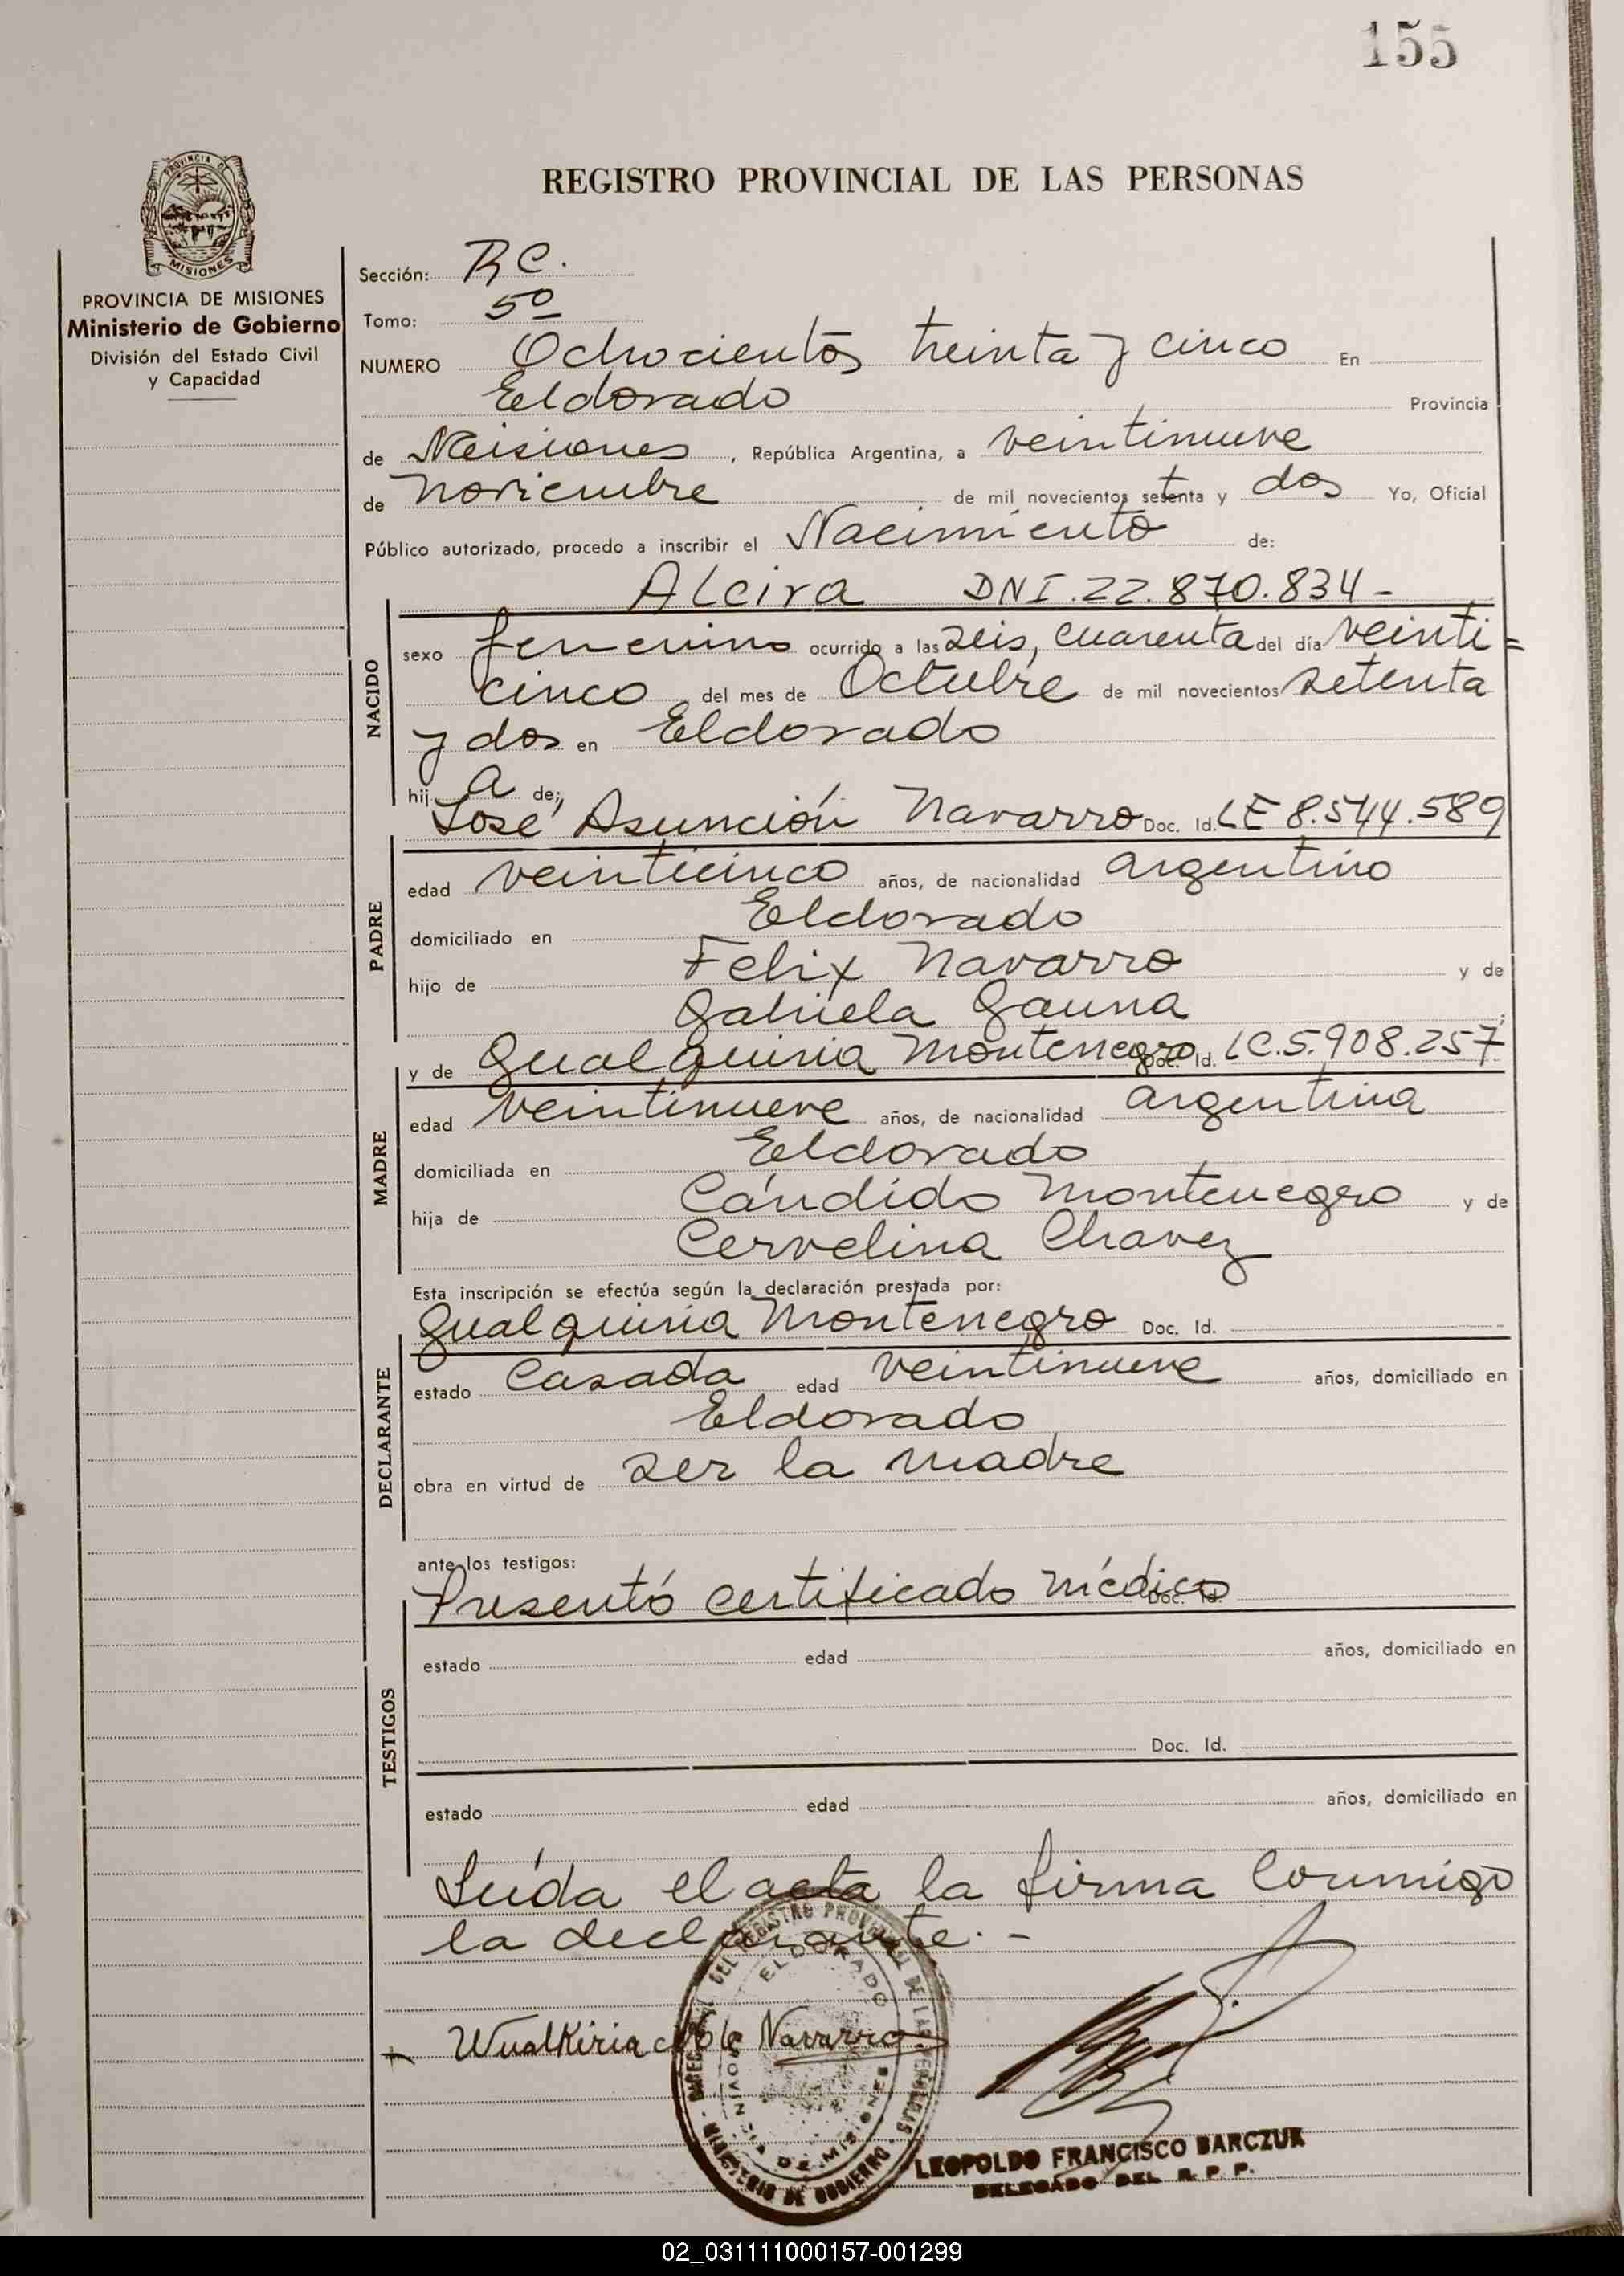 155
REGISTRO PROVINCIAL DE LAS PERSONAS
PROVINCIA DE MISIONES
Ministerio de Gobierno
División del Estado Civil
y Capacidad
Sección: R C.
Tomo: 5º
NUMERO Ochocientos treinta y cinco En
Eldorado Provincia
de Misiones, República Argentina, a veintinueve
de noviembre de mil novecientos setenta y dos Yo, Oficial
Público autorizado, procedo a inscribir el Nacimiento de:
Alcira DNI. 22.870.834-
NACIDO
sexo femenino ocurrido a las seis, cuarenta del día veinti=
cinco del mes de Octubre de mil novecientos setenta
y dos en Eldorado
hij a de;
José Asunción Navarro Doc. Id. LE 8.544.589
PADRE
edad veinticinco años, de nacionalidad argentino
domiciliado en Eldorado
hijo de Felix Navarro y de
Gabriela Gauna
y de Gualquiria Montenegro Doc. Id. LC. 5.908.257
MADRE
edad veintinueve años, de nacionalidad argentina
domiciliada en Eldorado
hija de Cándido Montenegro y de
Cervelina Chavez
Esta inscripción se efectúa según la declaración prestada por:
Gualquiria Montenegro Doc. Id.
DECLARANTE
estado Casada edad veintinueve años, domiciliado en
Eldorado
obra en virtud de ser la madre
ante los testigos:
Presentó certificado médico Doc. Id.
TESTIGOS
estado edad años, domiciliado en
Doc. Id.
estado edad años, domiciliado en
Leída el acta la firma conmigo
la declarante.-
Wualkiria de Navarro
DEL REGISTRO PROVINCIAL DE LAS PERSONAS
ELDORADO
PROVINCIA DE MISIONES
MINISTERIO DE GOBIERNO
LEOPOLDO FRANCISCO BARCZUK
DELEGADO DEL R. P. P.
02_031111000157-001299